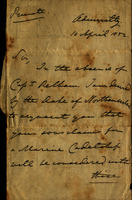 Private
Admiralty
10 April 1852
Sir
In the absence of
Capt. Pelham I am desired
by the Duke of Northumberland
to acquaint you that
your son's claim for
a Marine Cadetship
will be considered with
those